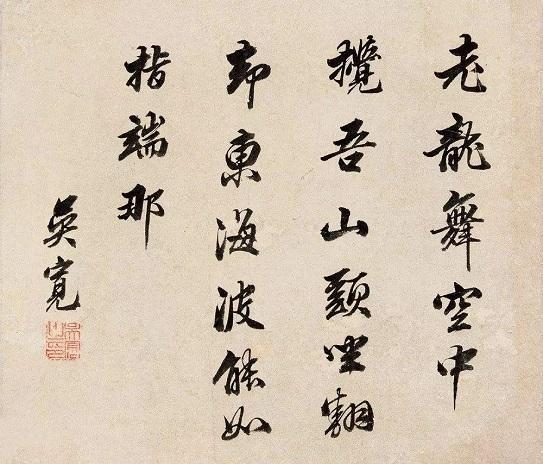 老龍舞空中
攪吾山頭坐翻
却東海波能如
指端那
吳寬